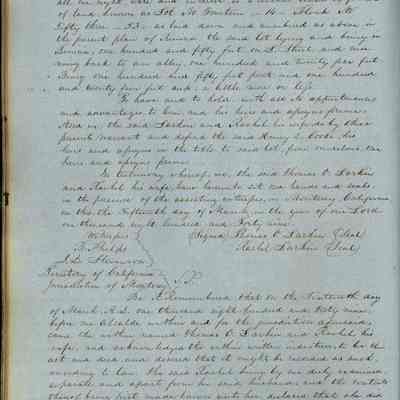 all our right, title and interest in a certain
of land, known as Lot No. Fourteen 14, Block No
Fifty three 53, as laid down and numbered as above, in
the present plan of Benicia the said lot lying and being in
Benicia, one hundred and fifty feet, on D. Street and run
ning back to an alley, one hundred and twenty five feet
Being one hundred and fifty feet front and one hundred
and twenty five feet deep, a little more or less
To have and to hold with all its appurtenances
and advantages to him and his heirs and assigns forever
And we the said Larkin and Rachel his wife do by these
presents warrant and defend the said Henry Cooke, his
heirs and assigns in the title to said lot, from ourselves, our
heirs and assigns forever.
In testimony whereof we, the said Thomas O. Larkin
and Rachel his wife have hereunto set our hands and seals
in the presence of the assisting witnesses, in Monterey California
on this the Fifteenth day of March, in the year of our Lord
one thousand eight hundred and Forty nine.
Witnesses (Signed) Thomas O. Larkin (Seal)
B. Phelps Rachel Larkin (Seal)
J. D. Stevenson
Territory of California
Jurisdiction of Monterey S.S.
Be it Remembered that on the Fifteenth day
of March A.D. one thousand eight hundred and Forty nine,
before me Alcalde within and for the jurisdiction aforesaid,
came the within named Thomas O. Larkin and Rachel his
wife, and acknowledged the within written indenture to be their
act and deed and desired that it might be recorded as such,
according to law. The said Rachel being by me duly examined
separate and apart from her said husband and the contents
thereof being first made known unto her declared that she did